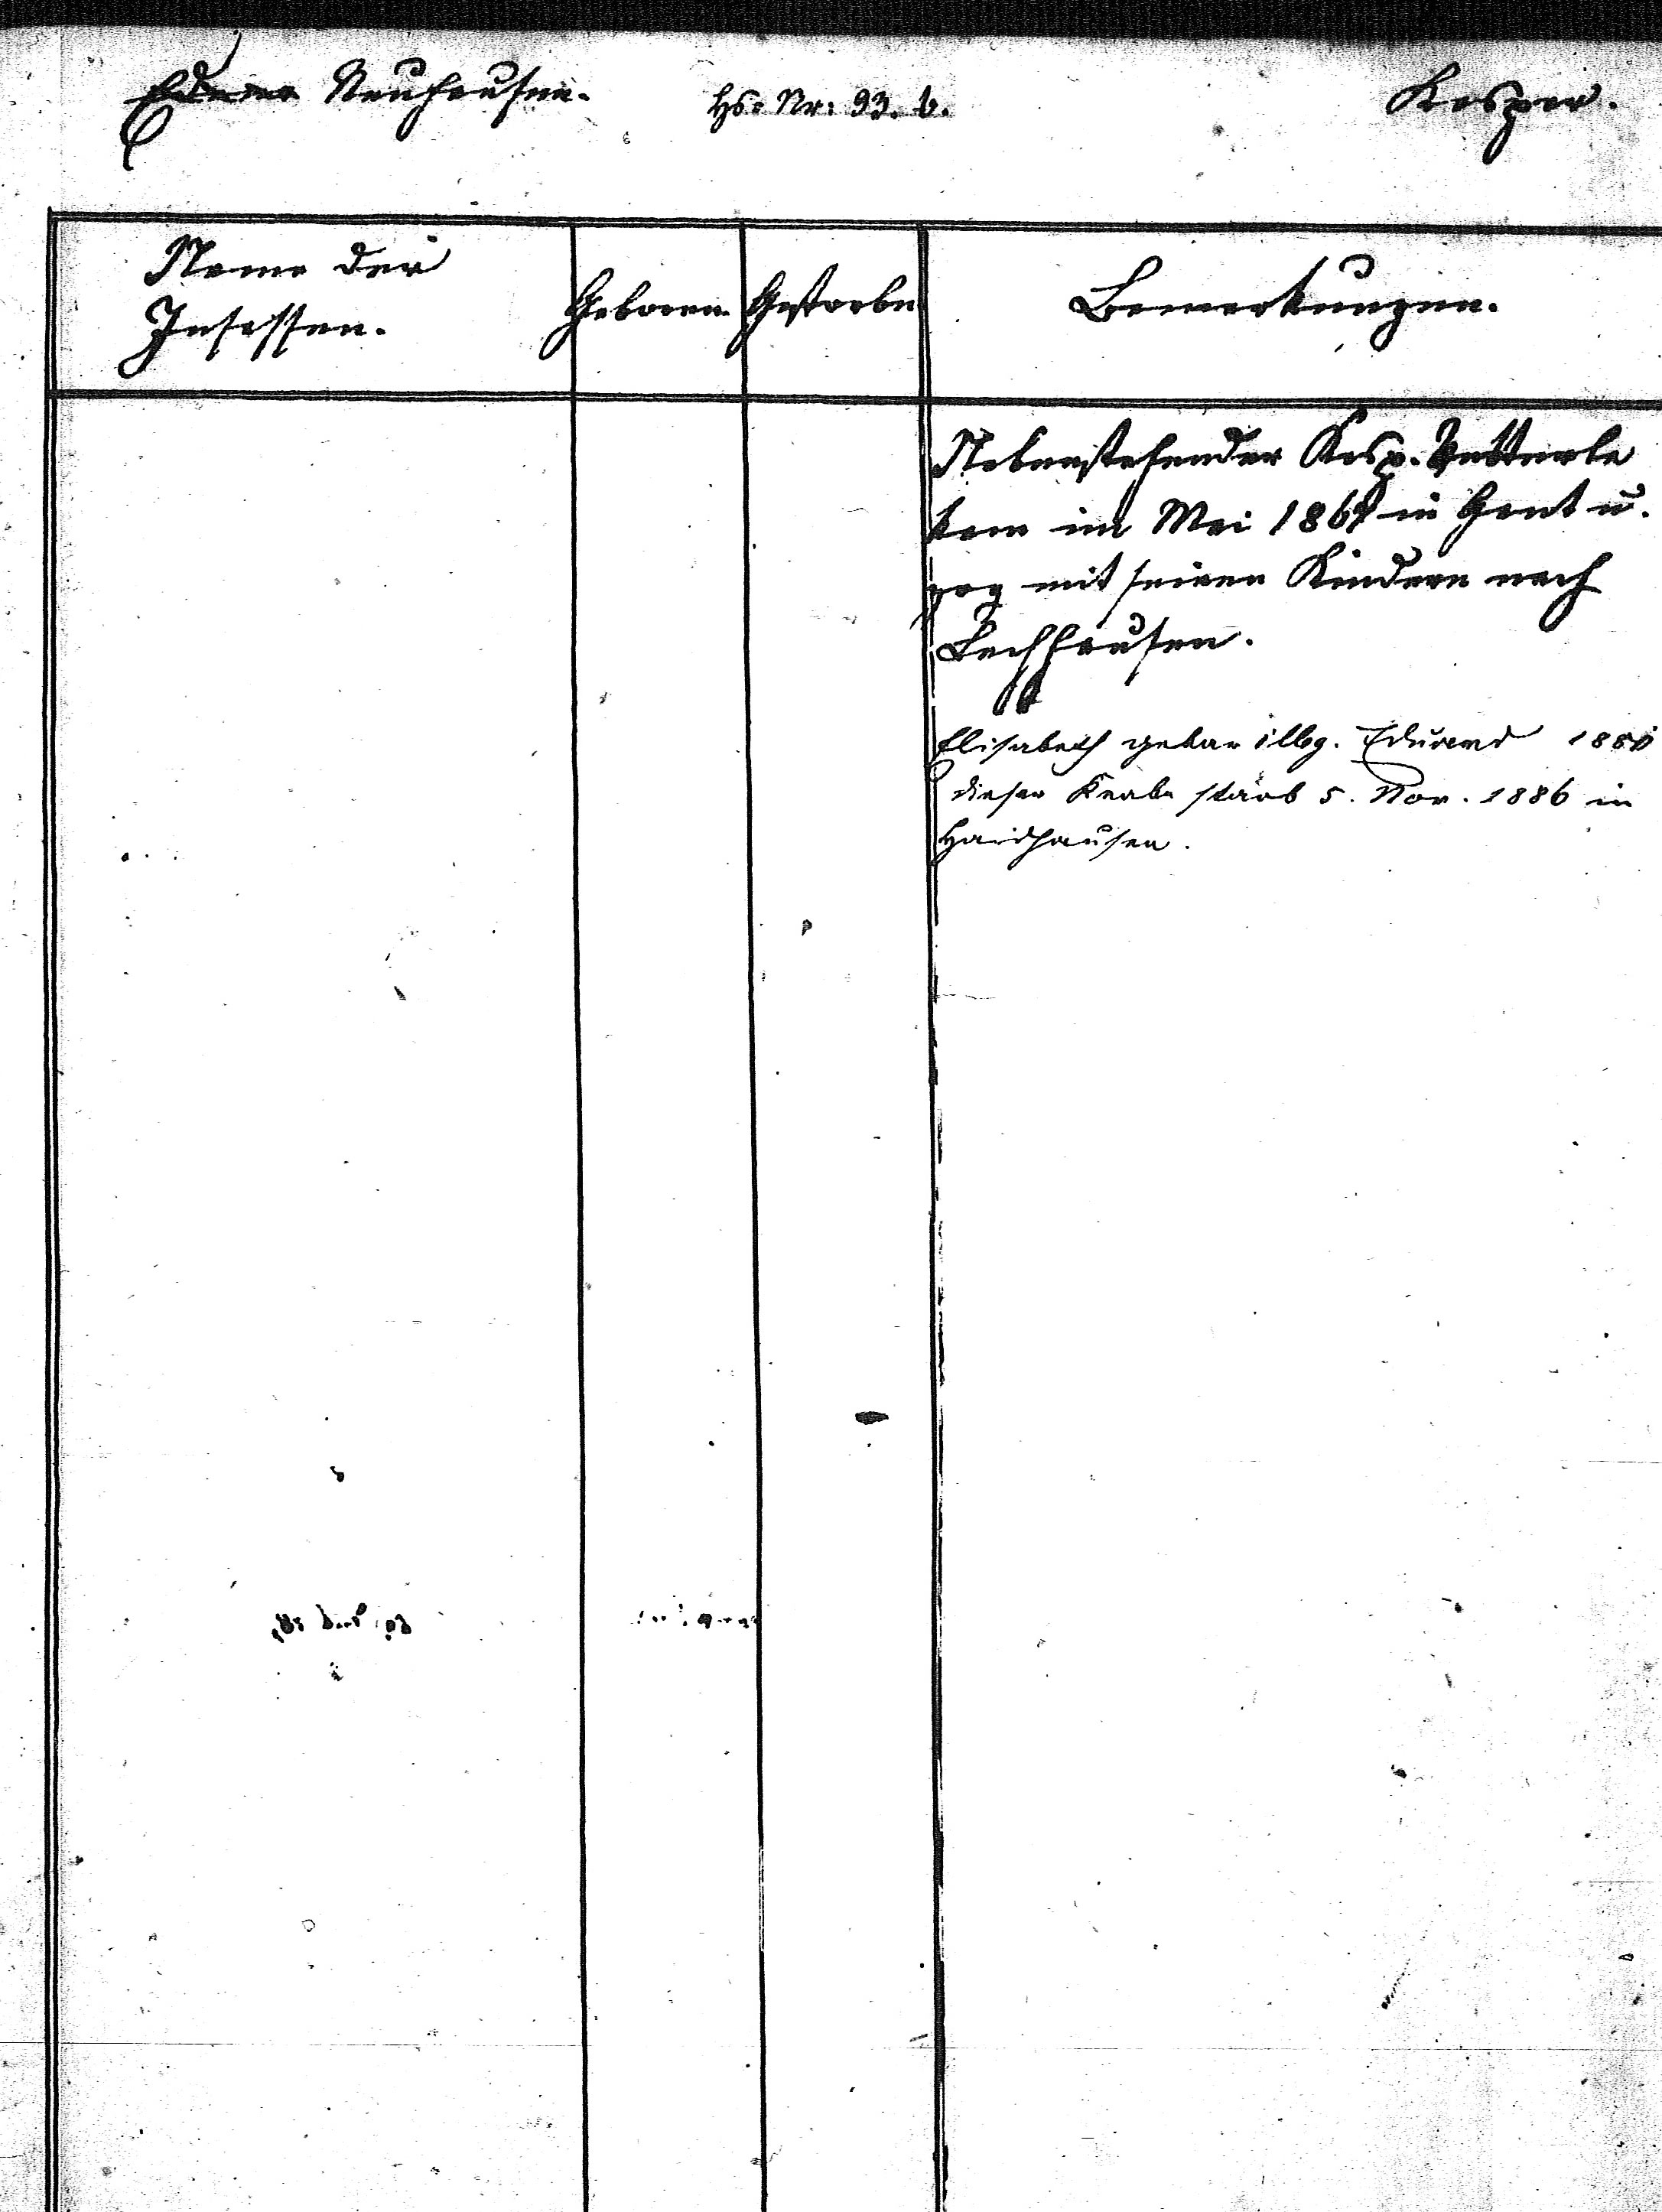 Neuhausen. Hs: Nr: 93. b. Kasper.
Name der
Insassen.
Geboren.
Gestorben
Bemerkungen.
Nebenstehender Kasp. Vetterle
kam im Mai 1867 in Gant u.
zog mit seinen Kindern nach
Lechhausen.
Elisabeth gebar illeg. Eduard
dieser Knabe starb 5. Nov. 1886 in
Haidhausen.